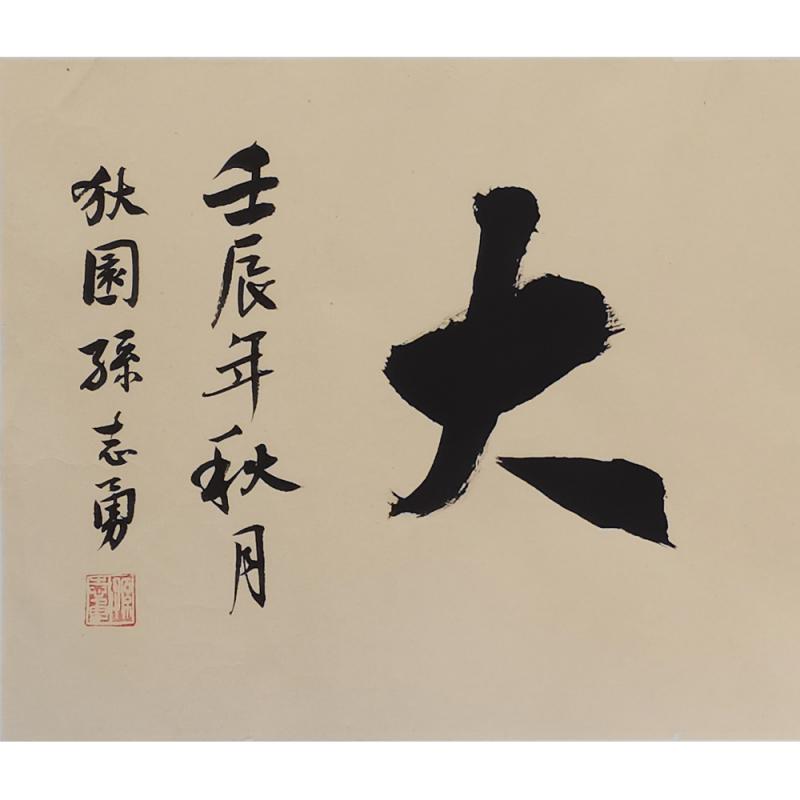 大
壬辰年秋月
狄園孫志勇